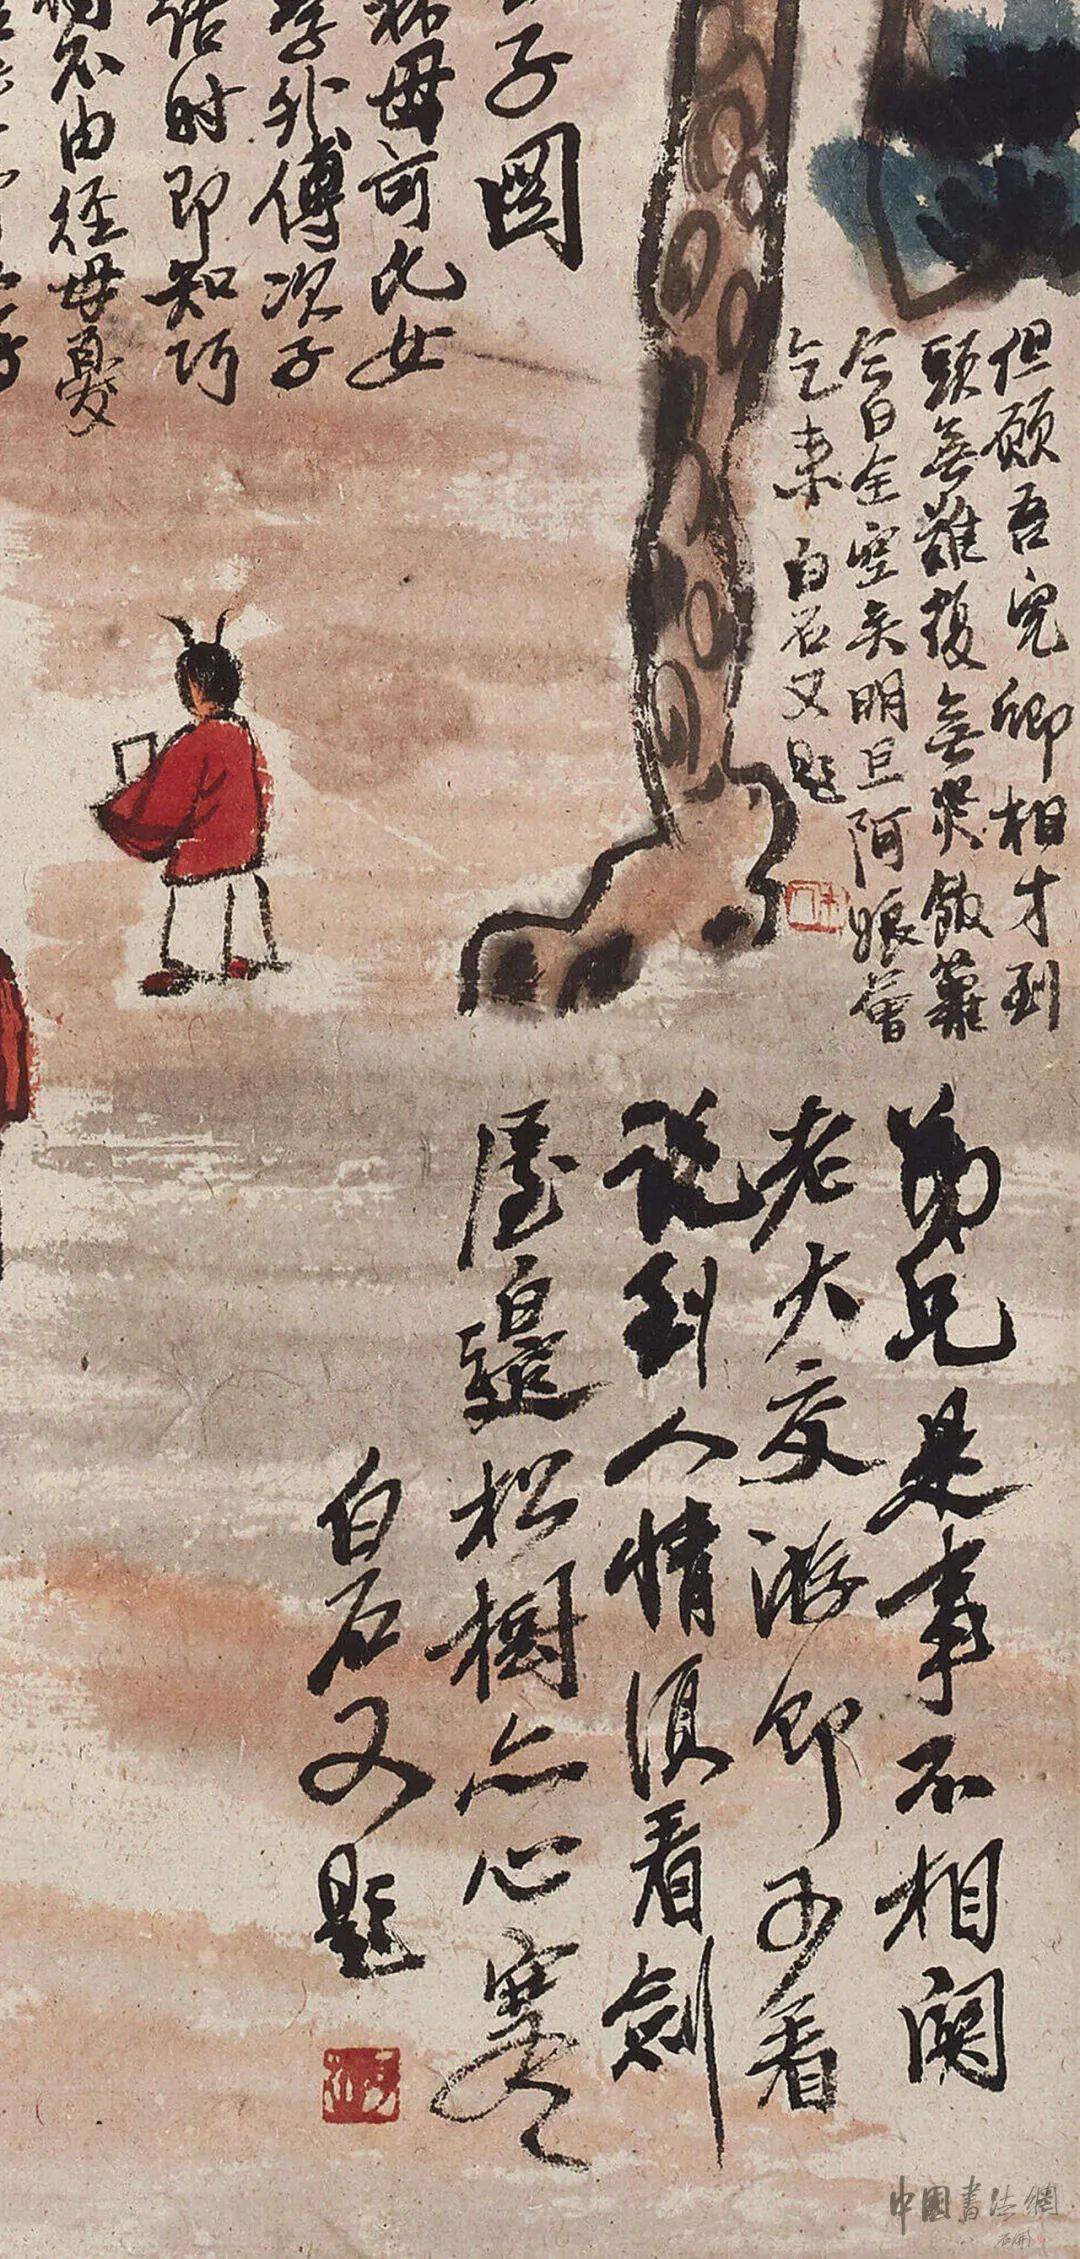 但願吾兒卿相才到
頭無難複無災飯蘿
今日全空矣明旦阿娘會
乞來 白石又題
子圖
母可比女
學外傅次子
時即知阿
不由徑母憂
弟兄是事不相關
老大交游即可看
說到人情須看劍
屋邊松樹亦心寒
白石又題
中國書法網